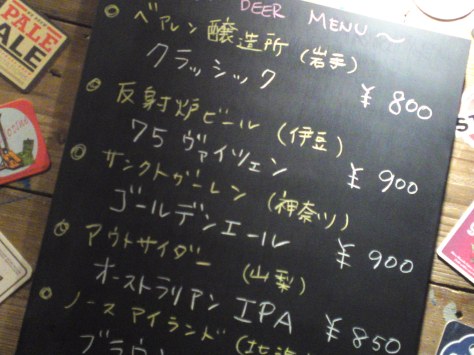 PALE
ALE
BEER MENU～
ベアレン醸造所(岩手)
クラッシック ¥800
反射炉ビール(伊豆)
75 ヴァイツェン ¥900
サンクトガーレン(神奈川)
ゴールデンエール ¥900
アウトサイダー(山梨)
オーストラリアン IPA ¥850
ノースアイランド
ブラウン